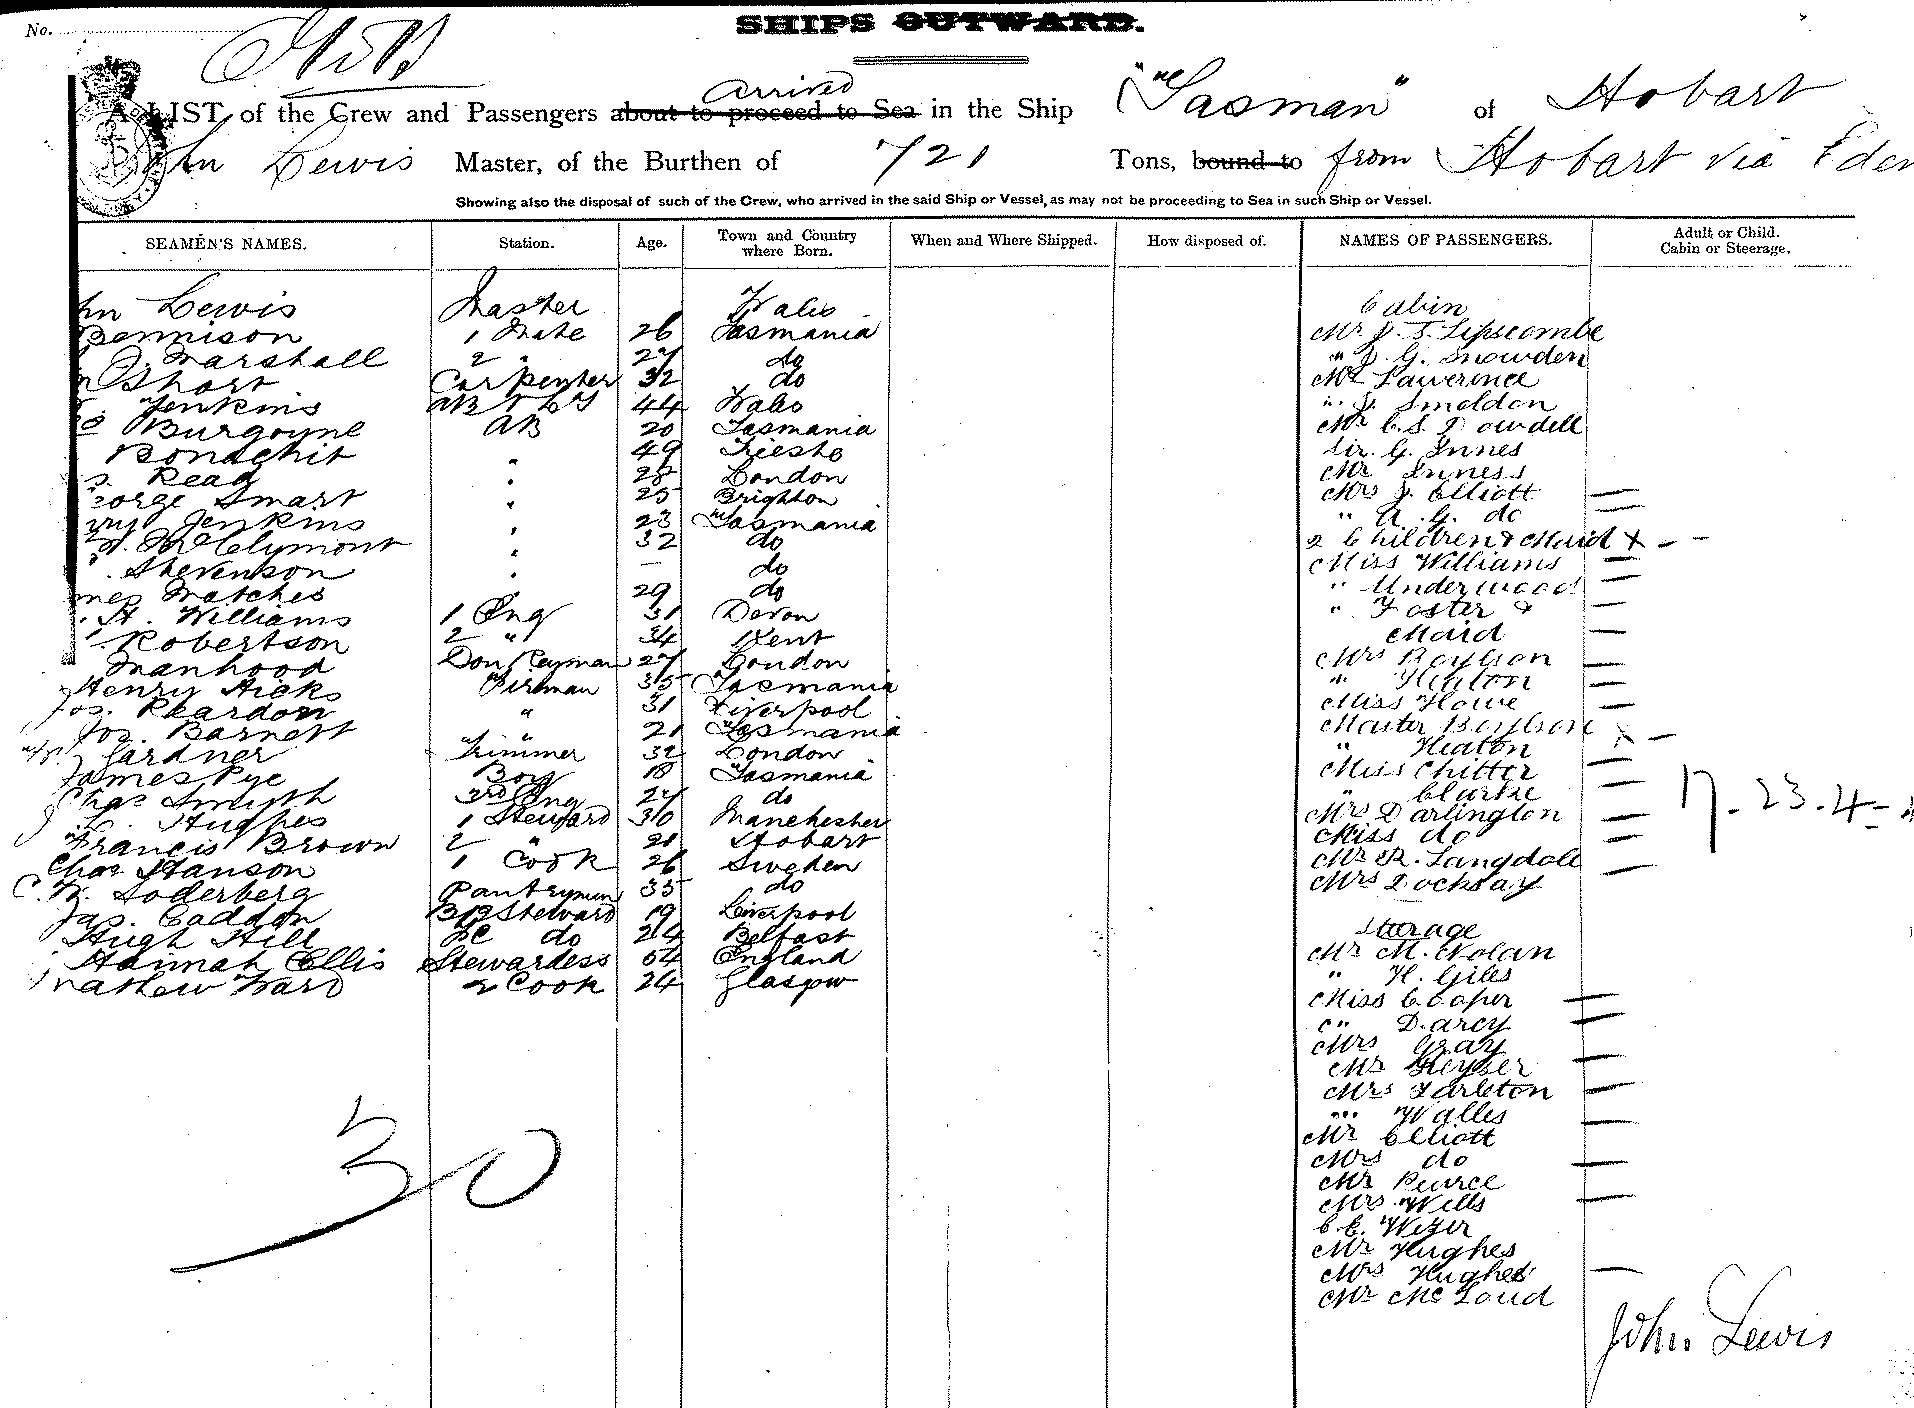 No.
SHIPS OUTWARD.
arrived
A LIST of the Crew and Passengers about to proceed to Sea in the Ship "Tasman" of Hobart
Lewis Master, of the Burthen of 721 Tons, bound to from Hobart via Eden
Showing also the disposal of such of the Crew, who arrived in the said Ship or Vessel, as may not be proceeding to Sea in such Ship or Vessel.
SEAMEN'S NAMES. Station. Age. Town and Country where Born. When and Where Shipped. How disposed of. NAMES OF PASSENGERS. Adult or Child. Cabin or Steerage.
hn Lewis Master Wales
Bennison 1 Mate 26 Tasmania
Marshall 2 " 27 do
Short Carpenter 32 do
Jenkins AB & L'ps 44 Wales
Burgoyne AB 20 Tasmania
Bonaghit " 49 Trieste
Read " 28 London
eorge Smart " 25 Brighton
Jenkins " 23 Tasmania
McClymont " 32 do
Stevenson " — do
mes Matches 29 do
H. Williams 1 Eng 31 Devon
Robertson 2 " 34 Kent
Manhood Donkeyman 27 London
Henry Hicks Fireman 35 Tasmania
Jos. Reardon " 31 Liverpool
Jos. Barnett 21 Tasmania
Gardner Trimmer 32 London
James Pye Boy 18 Tasmania
Chas Smyth 3rd Eng 27 do
Hughes 1 Steward 30 Manchester
Francis Brown 2 " 21 Hobart
Chas Hanson 1 Cook 26 Sweden
C. W. Soderberg Pantryman 35 do
Jas. Caddon BR Steward 19 Liverpool
Hugh Hill do 24 Belfast
Hannah Ellis Stewardess 64 England
Mathew Ward 2 Cook 24 Glasgow
30
Cabin
Mr J. T. Lipscombe
" J. G. Snowden
Mr Lawrence
" J. Smeldon
Mr C. S. Dowdell
Sir. G. Innes
Mr Inness
Mrs J. Elliott —
" A. G. do —
2 Children & Maid X - -
Miss Williams —
" Underwood —
" Foster & —
Maid —
Mrs Boylson —
" Heaton —
Miss Howe —
Master Boylson X —
" Heaton
Miss Chitter —
" Clarke —
Mrs Darlington —
Miss do —
Mr R. Langdale
Mrs Docksay —
17. 23. 4
Steerage
Mr M. Nolan
" H. Giles
Miss Cooper —
" Darcy —
Mrs Gray —
Mr Keyser
Mrs Tarleton —
" Walles —
Mr Elliott
Mrs do —
Mr Pearce
Mrs Wells —
C. C. Wezer
Mr Hughes
Mrs Hughes —
Mr McLoud
John Lewis